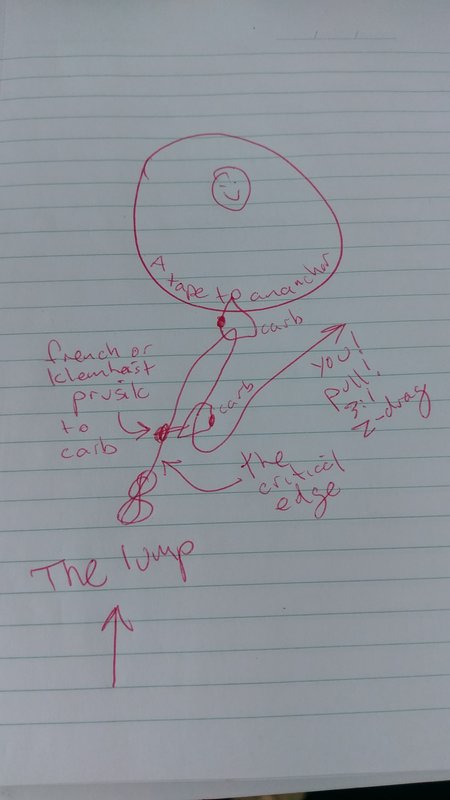 A tape to an anchor
carb
french or
klemheist
prusik
to
carb
carb
you!
pull!
3:1
z-drag
the
critical
edge
The lump